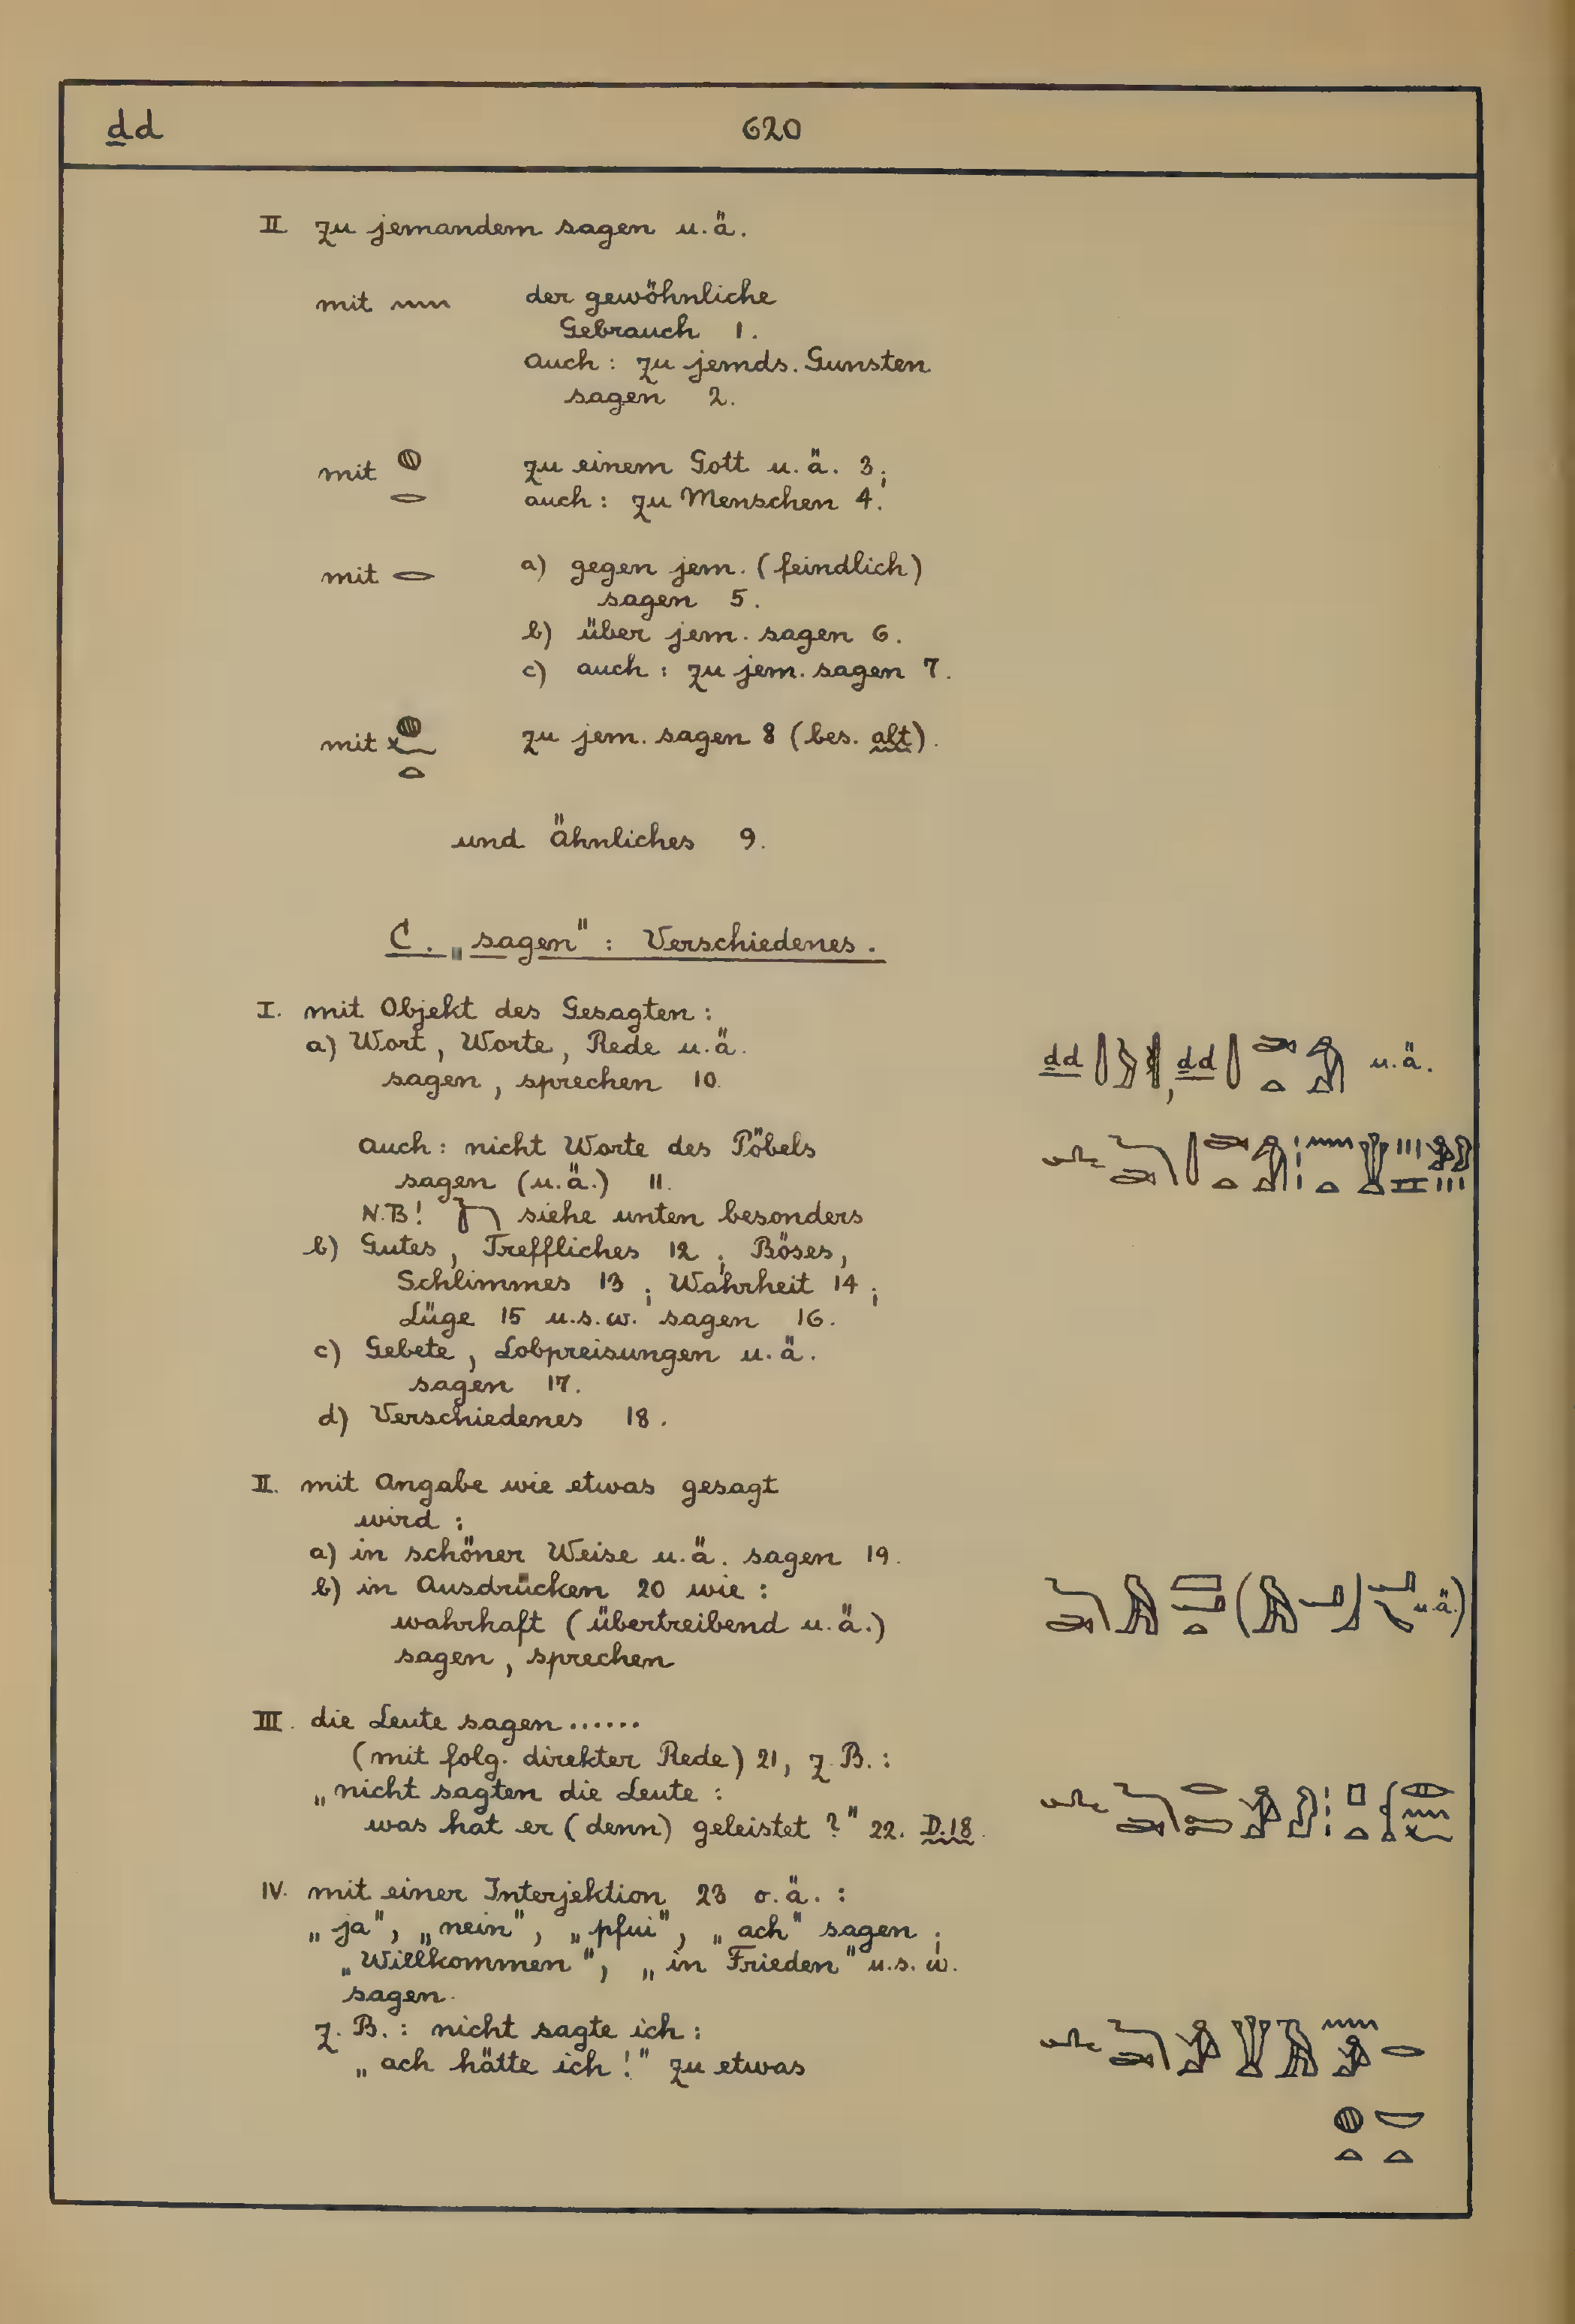 ḏd 620
II zu jemandem sagen u.ä.
mit 𓈖 der gewöhnliche
Gebrauch 1.
auch: zu jemds. Gunsten
sagen 2.
mit 𓐍𓂋 zu einem Gott u.ä. 3;
auch: zu Menschen 4.
mit 𓂋 a) gegen jem. (feindlich)
sagen 5.
b) über jem. sagen 6.
c) auch: zu jem. sagen 7.
mit 𓐍𓆑𓏏 zu jem. sagen 8 (bes. alt).
und ähnliches 9.
C. „sagen": Verschiedenes.
I. mit Objekt des Gesagten:
a) Wort, Worte, Rede u.ä. ḏd, ḏd u.ä.
sagen, sprechen 10.
auch: nicht Worte des Pöbels
sagen (u.ä.) 11.
N.B! siehe unten besonders
b) Gutes, Treffliches 12; Böses,
Schlimmes 13; Wahrheit 14;
Lüge 15 u.s.w. sagen 16.
c) Gebete, Lobpreisungen u.ä.
sagen 17.
d) Verschiedenes 18.
II. mit Angabe wie etwas gesagt
wird:
a) in schöner Weise u.ä. sagen 19.
b) in Ausdrücken 20 wie:
wahrhaft (übertreibend u.ä.) u.ä.)
sagen, sprechen
III. die Leute sagen......
(mit folg. direkter Rede) 21, z.B.:
„nicht sagten die Leute:
was hat er (denn) geleistet?" 22. D.18.
IV. mit einer Interjektion 23 o.ä.:
„ja", „nein", „pfui", „ach" sagen;
„Willkommen", „in Frieden" u.s.w.
sagen.
z.B.: nicht sagte ich:
„ach hätte ich!" zu etwas